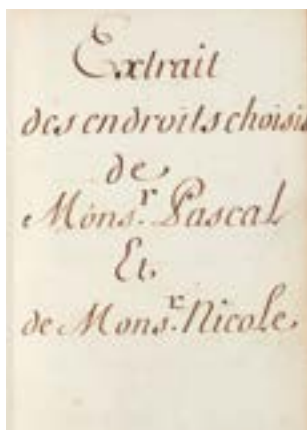 Extrait
des endroits choisis
de
Mons.r Pascal
Et
de Mons.r Nicole.